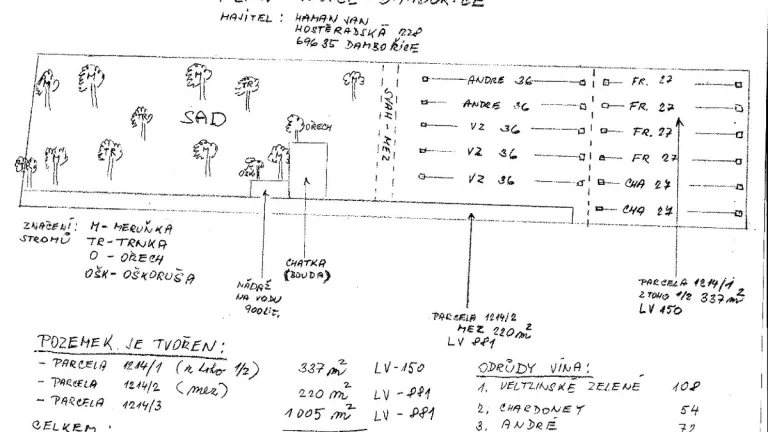 MAJITEL: HAMAN JAN
HOSTĚRADSKÁ 228
69635 DAMBOŘICE
M
M
TR
M
TR
SAD
OŘECH
M
M
TR
M
OŠK
M
SVAH - MEZ
ANDRE 36
ANDRE 36
VZ 36
VZ 36
VZ 36
FR. 27
FR. 27
FR. 27
FR 27
CHA 27
CHA 27
ZNAČENÍ: M-MERUŇKA
STROMŮ TR-TRNKA
O - OŘECH
OŠK- OŠKORUŠA
NÁDRŽ
NA VODU
900 LIT.
CHATKA
(BOUDA)
PARCELA 1214/2
MEZ 220 m²
LV 881
PARCELA 1214/1
Z TOHO 1/2 337 m²
LV 150
POZEMEK JE TVOŘEN:
- PARCELA 1214/1 (z toho 1/2) 337 m² LV-150
- PARCELA 1214/2 (mez) 220 m² LV - 881
- PARCELA 1214/3 1005 m² LV - 881
CELKEM:
ODRŮDY VÍNA:
1. VELTLINSKÉ ZELENÉ 108
2. CHARDONEY 54
3. ANDRÉ 72